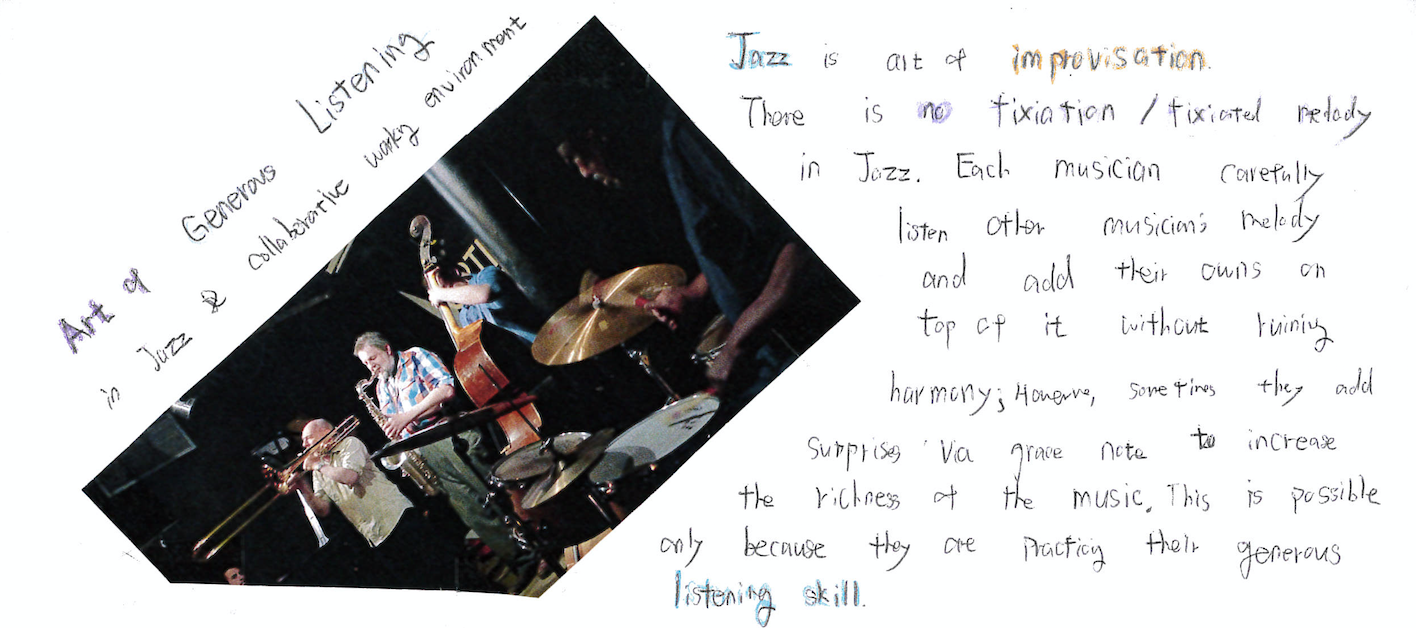 Art of Generous Listening
in Jazz & collaborative working environment
Jazz is art of improvisation.
There is no fixiation / fixiated melody
in Jazz. Each musician carefully
listen other musician's melody
and add their owns on
top of it without ruining
harmony; However, sometimes they add
surprises via grace note to increase
the richness of the music. This is possible
only because they are practicing their generous
listening skill.